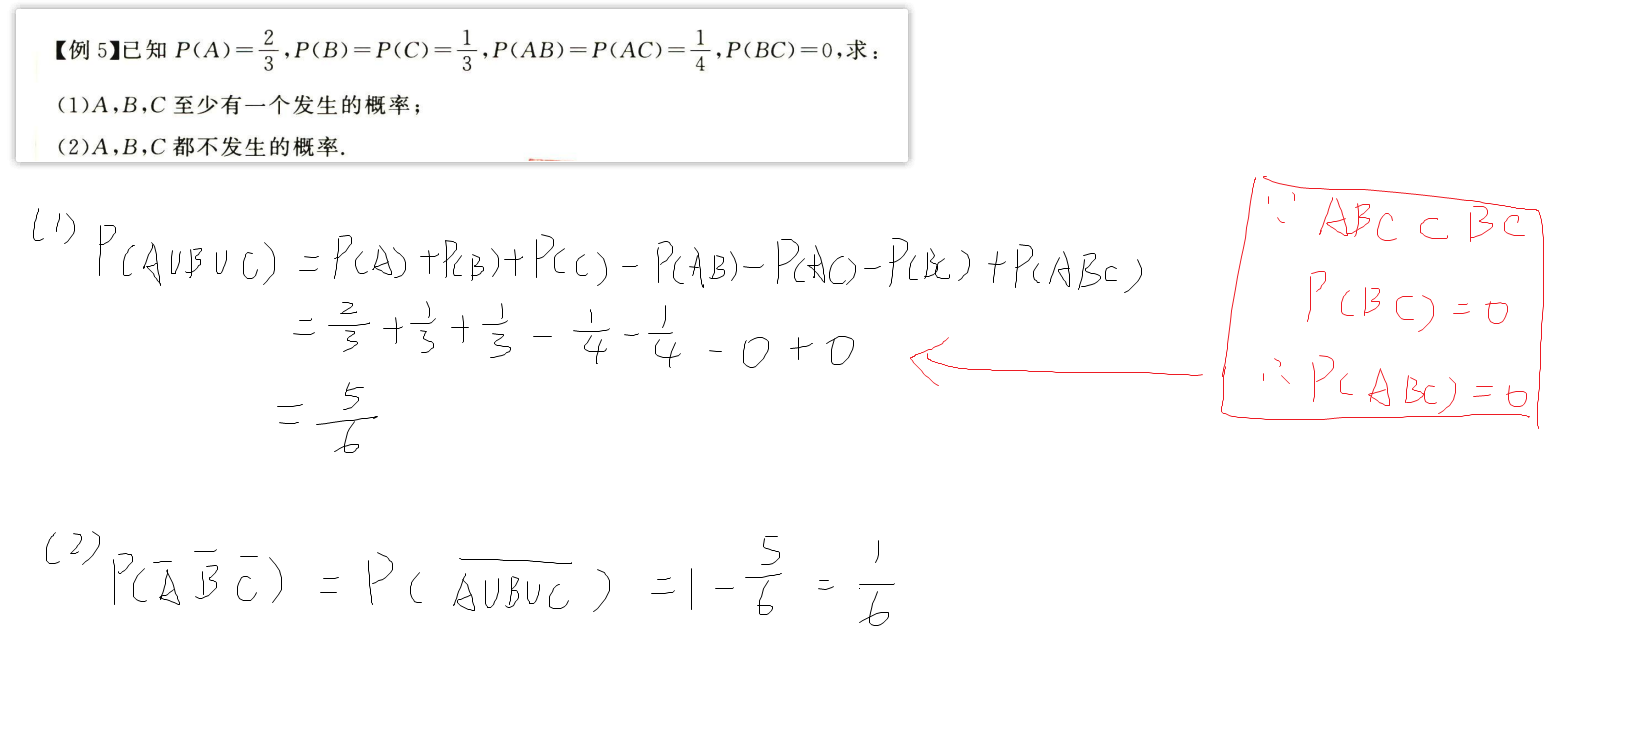 【例 5】已知 P(A)=2/3,P(B)=P(C)=1/3,P(AB)=P(AC)=1/4,P(BC)=0,求:
(1)A,B,C 至少有一个发生的概率;
(2)A,B,C 都不发生的概率.
(1) P(A∪B∪C) = P(A)+P(B)+P(C)-P(AB)-P(AC)-P(BC)+P(ABC)
= 2/3 + 1/3 + 1/3 - 1/4 - 1/4 - 0 + 0
= 5/6
∵ ABC ⊂ BC
P(BC)=0
∴ P(ABC)=0
(2) P(A̅ B̅ C̅) = P(\overline{A∪B∪C}) = 1 - 5/6 = 1/6